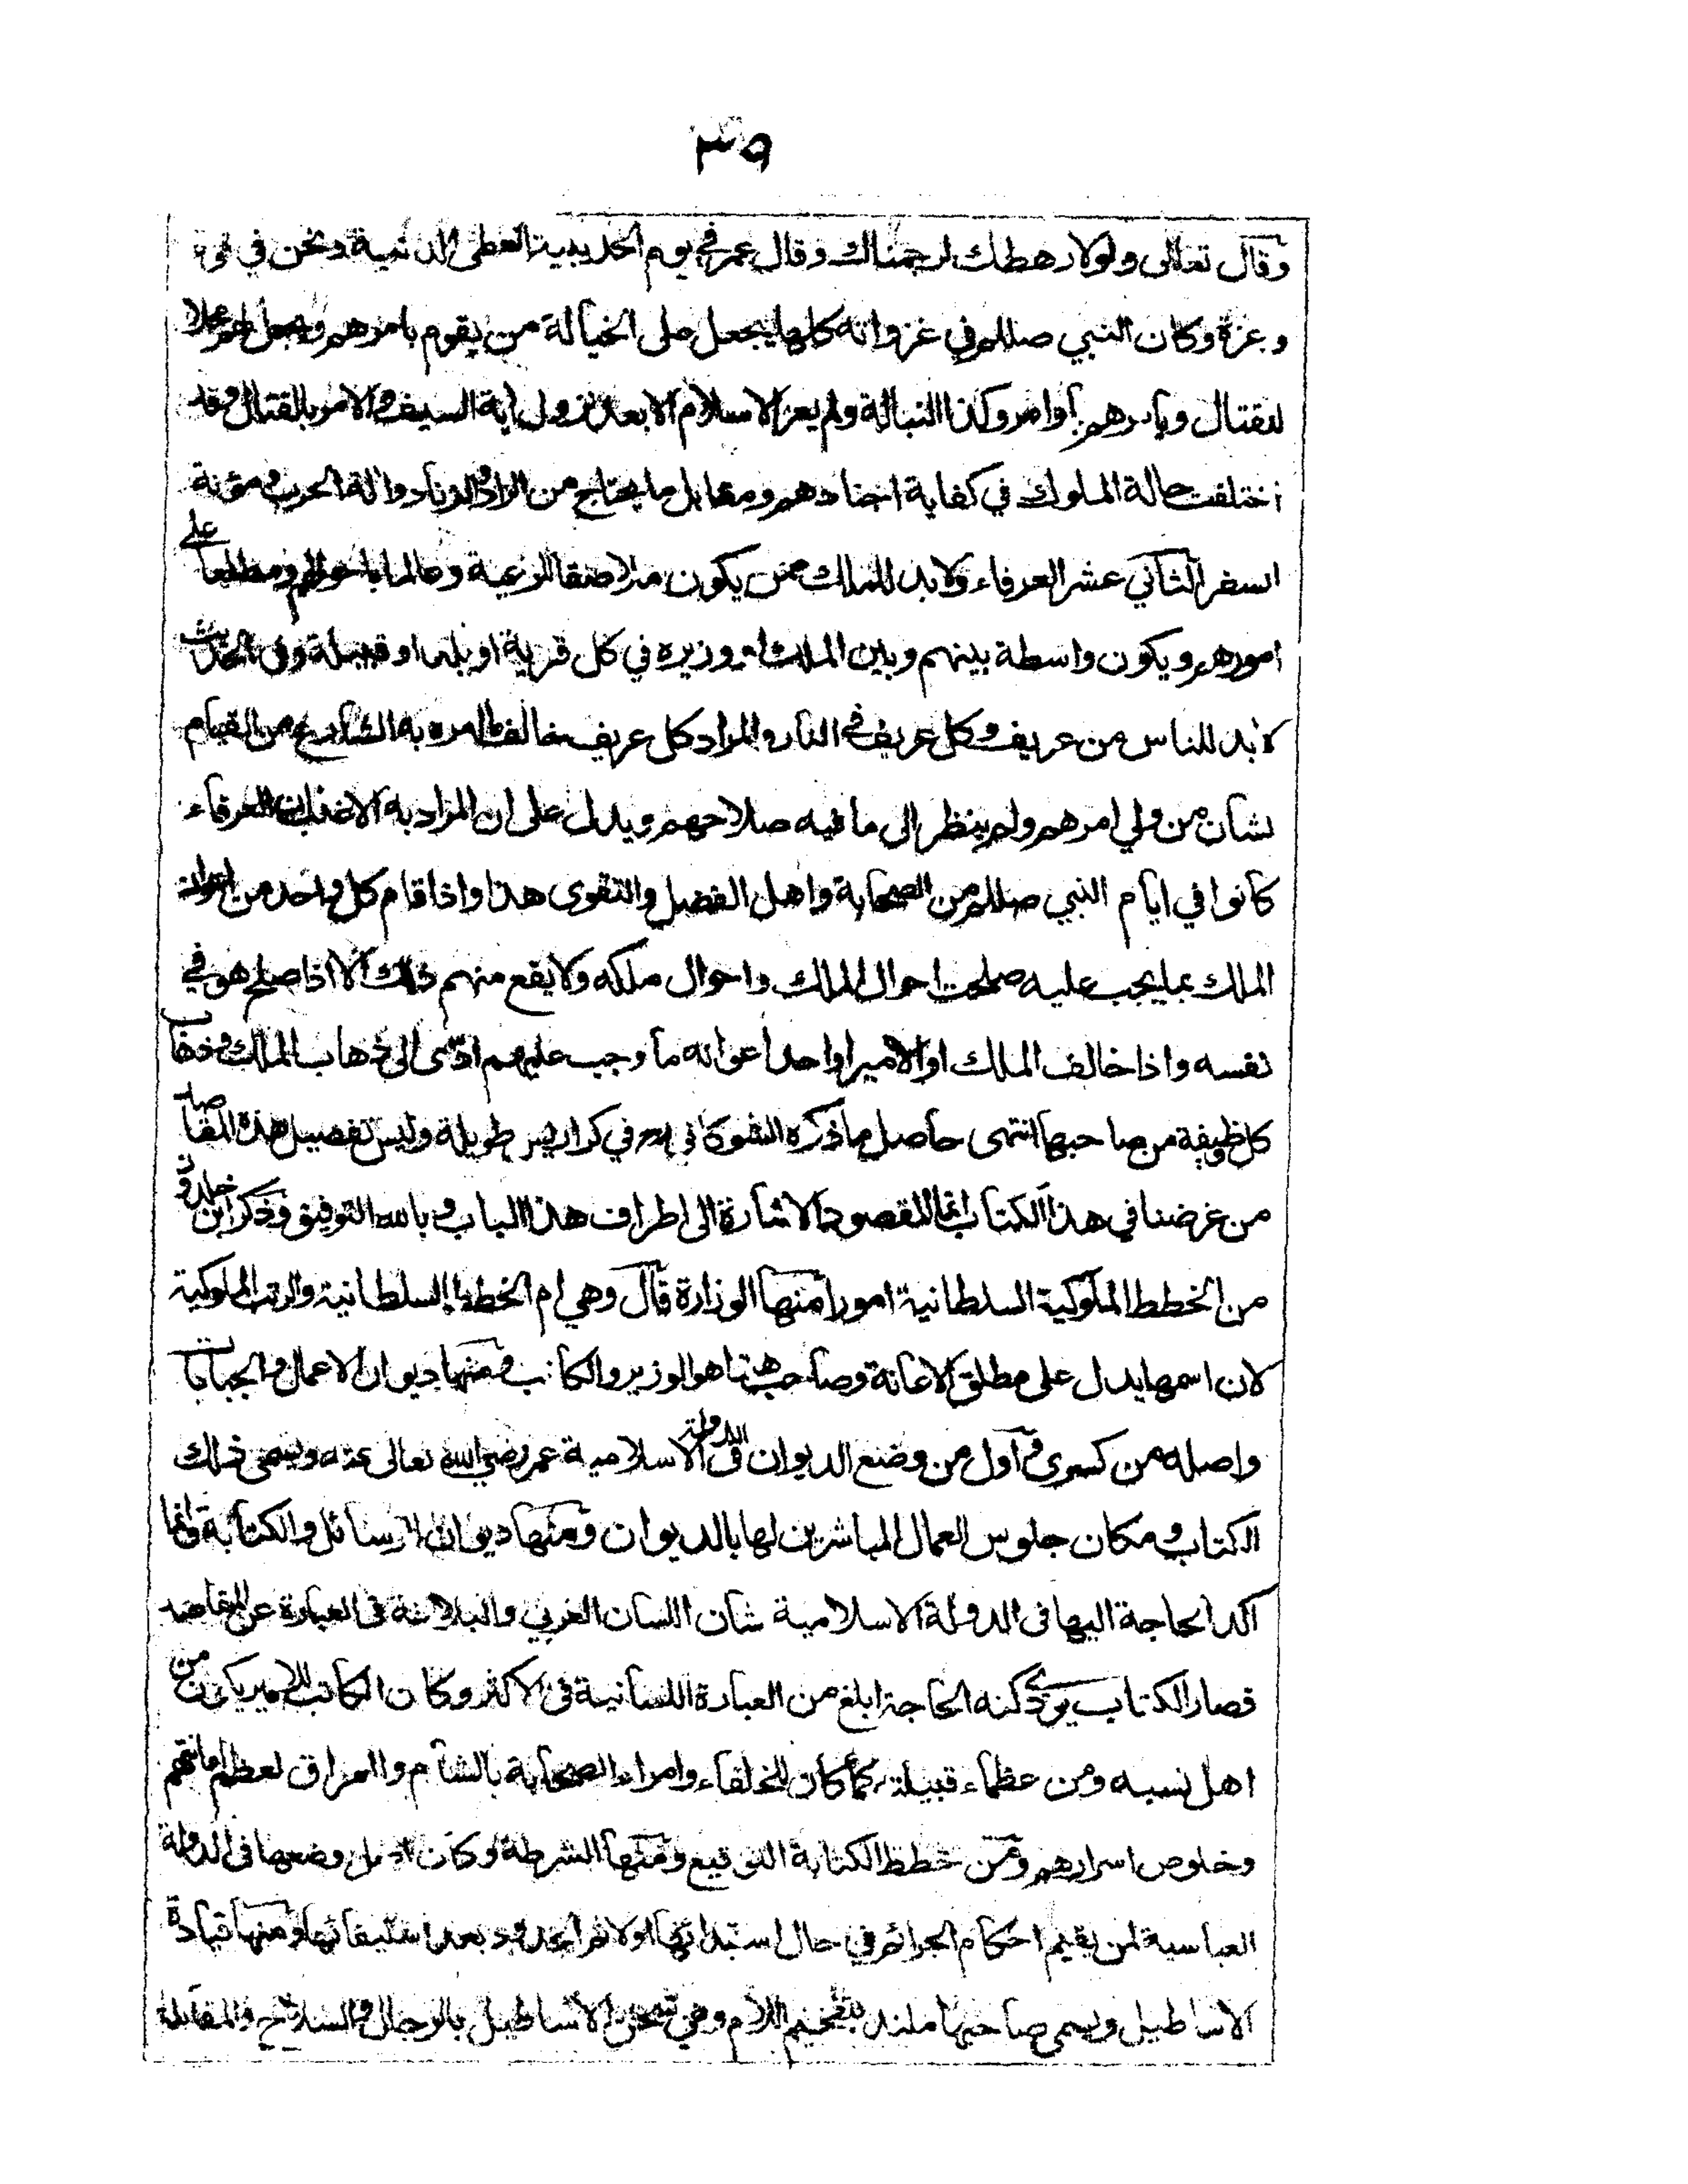 ٣٩
وقال تعالى ولولا رهطك لرجمناك وقال عمر في يوم الحديبية انعطى الدنية ونحن في
وعزة وكان النبي صللم في غزواته كلها يجعل على الخيالة من يقوم بامرهم ويجعل لهم محلا
للقتال ويأمرهم باوامر وكذا النبالة ولم يعز الاسلام الا بعد نزول اية السيف والامر بالقتال وقد
اختلفت حالة الملوك في كفاية اجنادهم ومقابل ما يحتاج من الزاد والزناد والة الحرب ومؤنة
السفر الثاني عشر العرفاء ولا بد للملك ممن يكون ملاصقا لرعية وعالما باحوالهم ومطلعا على
امورهم ويكون واسطة بينهم وبين الملك او وزيره في كل قرية او بلد او قبيلة وفي الحديث
لا بد للناس من عريف وكل عريف في النار والمراد كل عريف خالف ما امره به الشارع من القيام
بشان من ولي امرهم ولم ينظر الى ما فيه صلاحهم ويدل على ان المراد به الاغلب ان العرفاء
كانوا في ايام النبي صللم من الصحابة واهل الفضل والتقوى هذا واذا قام كل واحد من اعوان
الملك بما يجب عليه صلحت احوال الملك واحوال ملكه ولا يقع منهم ذلك الا اذا صلح هو في
نفسه واذا خالف الملك او الامير او احد اعوانه ما وجب عليهم ادى الى ذهاب الملك وذهاب
كل وظيفة من صاحبها انتهى حاصل ما ذكره الشوكاني رح في كراريس طويلة وليس تفصيل هذه المقاصد
من غرضنا في هذا الكتاب انما المقصود الاشارة الى اطراف هذا الباب وبالله التوفيق وذكر ابن خلدون
من الخطط الملوكية السلطانية امورا منها الوزارة قال وهي ام الخطط السلطانية والرتب الملوكية
لان اسمها يدل على مطلق الاعانة وصاحب هذا هو الوزير والكاتب ومنها ديوان الاعمال والجبايات
واصله من كسرى واول من وضع الديوان في الدولة الاسلامية عمر رضي الله تعالى عنه ويسمى ذلك
الكتاب ومكان جلوس العمال المباشرين لها بالديوان ومنها ديوان الرسائل والكتابة وانما
اكد الحاجة اليها في الدولة الاسلامية شان اللسان العربي والبلاغة في العبارة عن المقاصد
فصار الكتاب يؤدي كنه الحاجة ابلغ من العبارة اللسانية في الاكثر وكان الكاتب للامير يكون من
اهل نسبه ومن عظماء قبيلته كما كان للخلفاء وامراء الصحابة بالشام والعراق لعظم امانتهم
وخلوص اسرارهم ومن خطط الكتابة التوقيع ومنها الشرطة وكان اصل وضعها في الدولة
العباسية لمن يقيم احكام الجرائم في حال استبدائها اولا ثم الحدود بعد استيفائها ومنها قيادة
الاساطيل ويسمى صاحبها ملند بتفخيم اللام وهي شحن الاساطيل بالرجال والسلاح والمقابلة